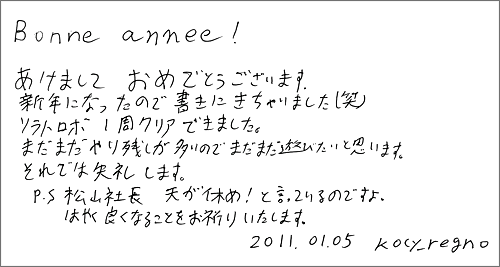 Bonne annee!
あけまして おめでとうございます.
新年になったので書きにきちゃいました(笑)
ソラトロボ 1周クリアできました。
まだまだやり残しが多いのでまだまだ遊びたいと思います。
それでは失礼します。
P.S 松山社長 天が休め!と言っているのですよ.
はやく良くなることをお祈りいたします.
2011.01.05 kocy_regno